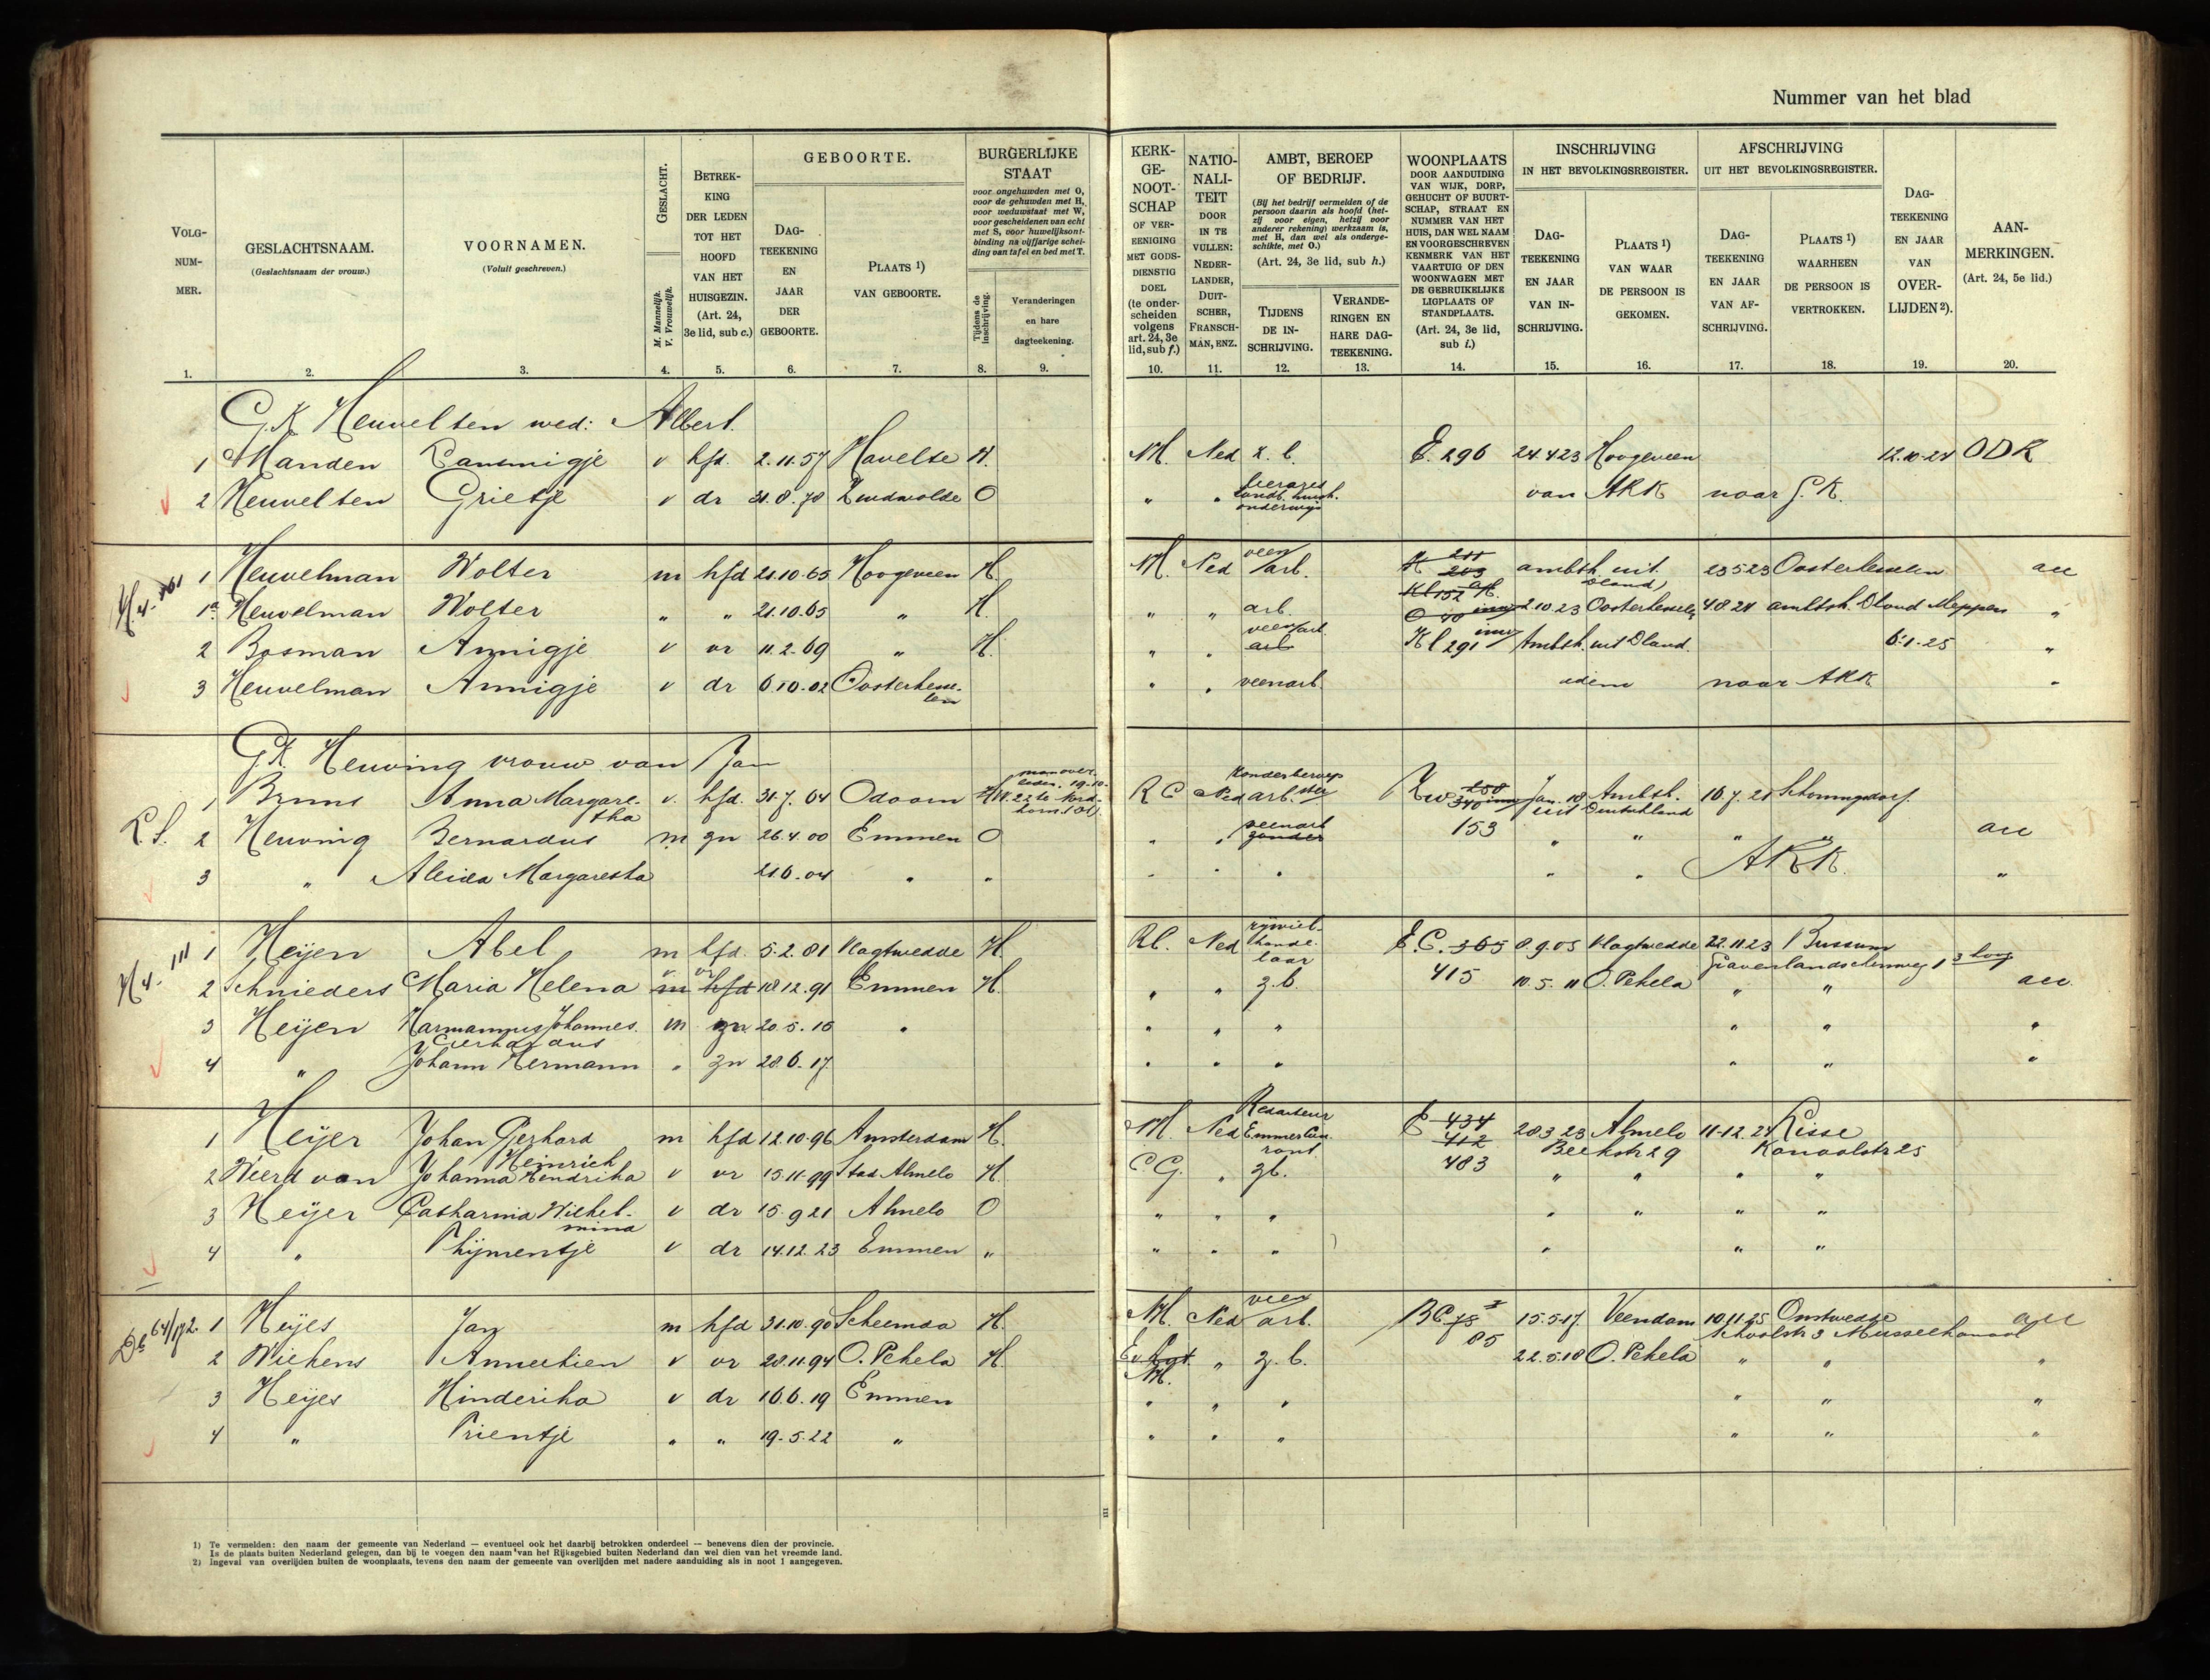 Nummer van het blad
VOLG-NUM-MER.
GESLACHTSNAAM.
(Geslachtsnaam der vrouw.)
VOORNAMEN.
(Voluit geschreven.)
GESLACHT.
M. Mannelijk.
V. Vrouwelijk.
BETREK-KING DER LEDEN TOT HET HOOFD VAN HET HUISGEZIN.
(Art. 24, 3e lid, sub c.)
GEBOORTE.
DAG-TEEKENING EN JAAR DER GEBOORTE.
PLAATS 1) VAN GEBOORTE.
BURGERLIJKE STAAT
voor ongehuwden met O, voor de gehuwden met H, voor weduwstaat met W, voor gescheidenen van echt met S, voor huwelijksont-binding na vijfjarige schei-ding van tafel en bed met T.
Tijdens de inschrijving.
Veranderingen en hare dagteekening.
KERK-GE-NOOT-SCHAP OF VER-EENIGING MET GODS-DIENSTIG DOEL
(te onder-scheiden volgens art. 24, 3e lid, sub f.)
NATIO-NALI-TEIT DOOR IN TE VULLEN: NEDER-LANDER, DUIT-SCHER, FRANSCH-MAN, ENZ.
AMBT, BEROEP OF BEDRIJF.
(Bij het bedrijf vermelden of de persoon daarin als hoofd (het-zij voor eigen, hetzij voor anderer rekening) werkzaam is, met H, dan wel als onderge-schikte, met O.)
(Art. 24, 3e lid, sub h.)
TIJDENS DE IN-SCHRIJVING.
VERANDE-RINGEN EN HARE DAG-TEEKENING.
WOONPLAATS
DOOR AANDUIDING VAN WIJK, DORP, GEHUCHT OF BUURT-SCHAP, STRAAT EN NUMMER VAN HET HUIS, DAN WEL NAAM EN VOORGESCHREVEN KENMERK VAN HET VAARTUIG OF DEN WOONWAGEN MET DE GEBRUIKELIJKE LIGPLAATS OF STANDPLAATS.
(Art. 24, 3e lid, sub i.)
INSCHRIJVING IN HET BEVOLKINGSREGISTER.
DAG-TEEKENING EN JAAR VAN IN-SCHRIJVING.
PLAATS 1) VAN WAAR DE PERSOON IS GEKOMEN.
AFSCHRIJVING UIT HET BEVOLKINGSREGISTER.
DAG-TEEKENING EN JAAR VAN AF-SCHRIJVING.
PLAATS 1) WAARHEEN DE PERSOON IS VERTROKKEN.
DAG-TEEKENING EN JAAR VAN OVER-LIJDEN 2).
AAN-MERKINGEN.
(Art. 24, 5e lid.)
1. 2. 3. 4. 5. 6. 7. 8. 9. 10. 11. 12. 13. 14. 15. 16. 17. 18. 19. 20.
G.K. Heuvelten wed: Albert.
1 Manden v hfd. 2.11.57 Havelte H. Ned z.b. E. 296 24.4.23 Hoogeveen 12.10.24 ODK
2 Heuvelten Grietje v dr 31.8.78 Zuidwolde O " " van AKK naar G.K.
1 Heuvelman Wolter m hfd 21.10.65 Hoogeveen H. Ned veen arb. 203 ambtsh. uit Dland 23 5 23 Oosterhesselen
1a Heuvelman Wolter " " 21.10.65 " H. " " arb. 2.10.23 Oosterhesselen 4.8.24 ambtsh. Dland Meppen "
2 Bosman Annigje v vr 11.2.69 " H. " " veen arb Kl 291 Ambtsh. uit Dland. 6-1-25 "
3 Heuvelman Annigje v dr 6.10.02 Oosterhesselen " " veenarb. idem naar AKK "
G.K. Heuving vrouw van Jan
1 Bruns Anna Margaretha v. hfd. 31.7.64 Odoorn H R C Ned Zw 250 340 Jan. 18 Ambtsh. uit Duitschland 16.7.21 Schoningsdorf
2 Heuving Bernardus m zn 26.4.00 Emmen O " " veenarb zonder 153 " " "
3 " Margaretha 21.6.04 " " " " " " " AKK "
1 Heijen Abel m hfd. 5.2.81 Vlagtwedde H. Ned rijwielhandelaar E.C. 365 8.9.05 Vlagtwedde 22.11.23 Bussum
2 Schnieders Maria Helena v m vr hfd 18 12.91 Emmen H. " " z.b. 415 10.5.11 O. Pekela " "
3 Heijen Johannes m zn 20.5.16 " " " " " " "
4 " Johann Hermann " zn 28.6.17. " " " " " "
1 Heijer Johan Gerhard Heinrich m hfd 12.10.96 Amsterdam H. Ned Redacteur Emmer Courant E 434 412 28 3 23 Almelo Beekstr 29 11-12.24 Risse Kanaalstr 25
2 Weerd van Johanna Hendrika v vr 15.11.99 Stad Almelo H. C G. " z.b. 483 " " " "
3 Heijer Catharina Wilhelmina v dr 15.9 21 Almelo O " " " " " " "
4 " Thijmentje v dr 14.12.23 Emmen " " " " " " "
1 Heijes Jan m hfd 31.10.90 Scheemda H. Ned veen arb. BC 75 85 15.5.17 Veendam 10.11.25 Onstwedde Schoolstr 3 Musselkanaal
2 Wiekens Annechien v vr 28.11.94 O. Pekela H. " z.b. 22.5.18 O. Pekela " " "
3 Heijes Hinderika v dr 16.6.19 Emmen " " " " " "
4 " Trientje " " 19.5.22 " " " " " " "
1) Te vermelden: den naam der gemeente van Nederland — eventueel ook het daarbij betrokken onderdeel — benevens dien der provincie.
Is de plaats buiten Nederland gelegen, dan bij te voegen den naam van het Rijksgebied buiten Nederland dan wel dien van het vreemde land.
2) Ingeval van overlijden buiten de woonplaats, tevens den naam der gemeente van overlijden met nadere aanduiding als in noot 1 aangegeven.